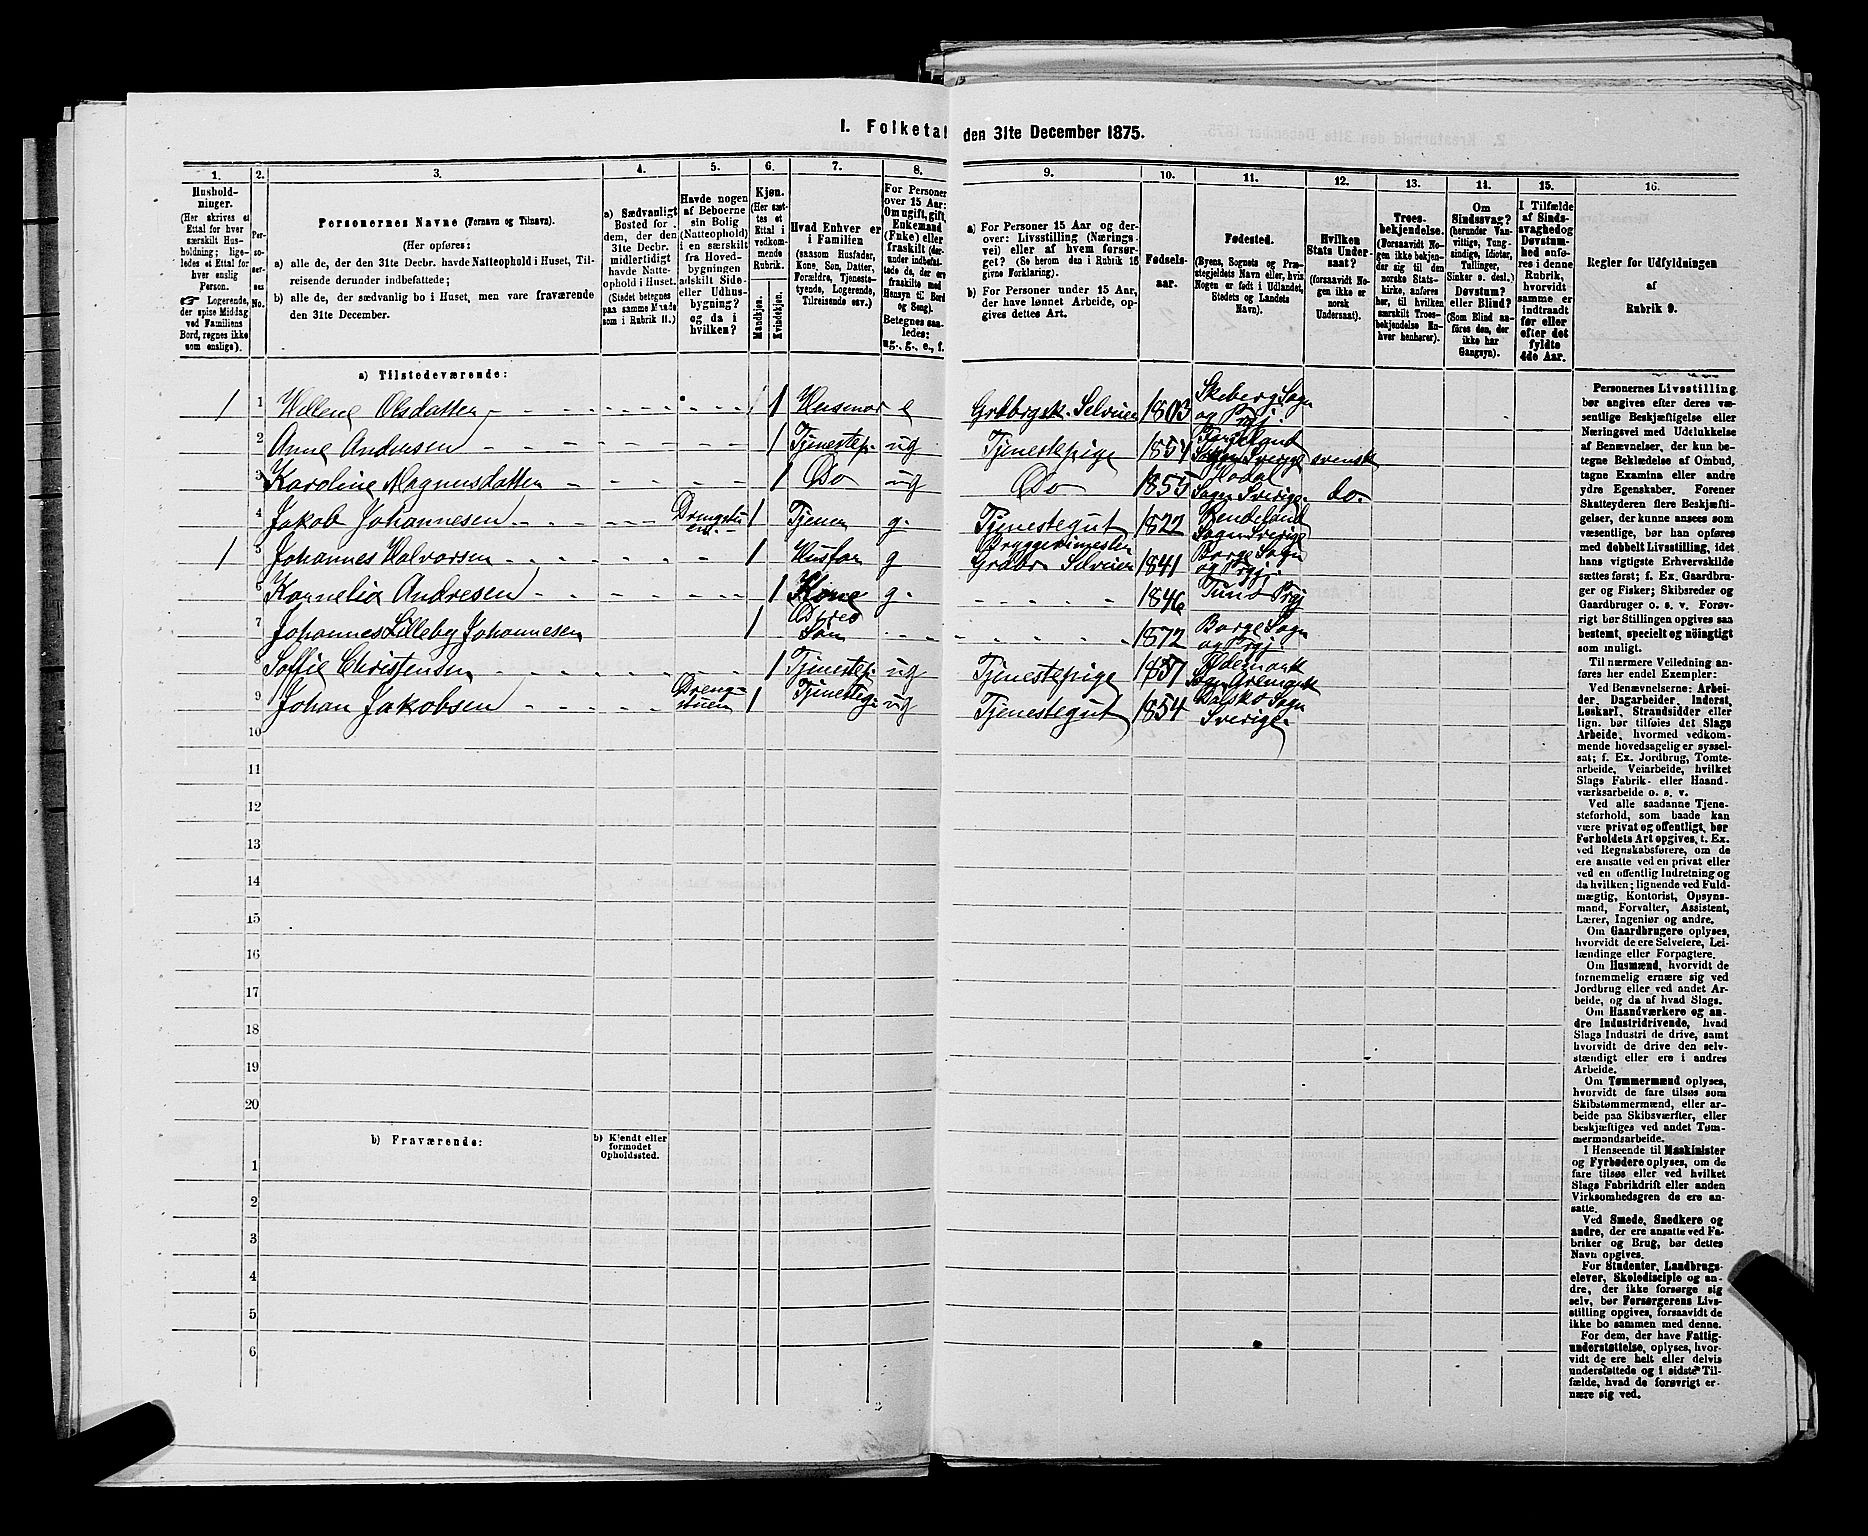 I. Folketal den 31te December 1875.
1. 2. 3. 4. 5. 6. 7. 8. 9. 10. 11. 12. 13. 14. 15. 16.
Hushold-
ninger.
(Her skrives et
Ettal for hver
særskilt Hus-
holdning; lige-
ledes et Ettal for
hver enslig
Person.
☞ Logerende,
der spise Middag
ved Familiens
Bord, regnes ikke
som enslige).
Per-
so-
ner-
nes
No.
Personernes Navne (Fornavn og Tilnavn).
(Her opføres:
a) alle de, der den 31te Decbr. havde Natteophold i Huset, Til-
reisende derunder indbefattede;
b) alle de, der sædvanlig bo i Huset, men vare fraværende
den 31te December.
a) Sædvanligt
Bosted for
dem, der den
31te Decbr.
midlertidigt
havde Natte-
ophold i Huset.
(Stedet betegnes
paa samme Maade
som i Rubrik 11.)
Havde nogen
af Beboerne
sin Bolig
(Natteophold)
i en særskilt
fra Hoved-
bygningen
adskilt Side-
eller Udhus-
bygning?
og da i
hvilken?
Kjøn.
(Her sæt-
tes et
Ettal i
vedkom-
mende
Rubrik.
Mandkjøn.
Kvindekjøn.
Hvad Enhver er
i Familien
(saasom Husfader,
Kone, Søn, Datter,
Forældre, Tjeneste-
tyende, Logerende,
Tilreisende osv.)
For Personer
over 15 Aar:
Om ugift, gift,
Enkemand
(Enke) eller
fraskilt (der-
under indbefat-
tede de, der ere
fraskilte med
Hensyn til Bord
og Seng).
Betegnes saa-
ledes:
ug., g., e., f.
a) For Personer 15 Aar og der-
over: Livsstilling (Nærings-
vei) eller af hvem forsør-
get? (Se herom den i Rubrik 16
givne Forklaring).
b) For Personer under 15 Aar,
der have lønnet Arbeide, op-
gives dettes Art.
Fødsels-
aar.
Fødested.
(Byens, Sognets og Præ-
stegjeldets Navn eller, hvis
Nogen er født i Udlandet,
Stedets og Landets
Navn).
Hvilken
Stats Under-
saat?
(forsaavidt No-
gen ikke er
norsk
Undersaat).
Troes-
bekjendelse.
(Forsaavidt No-
gen ikke bekjen-
der sig til den
norske Stats-
kirke, anføres
her, til hvilken
særskilt Troes-
bekjendelse En-
hver henhører).
Om
Sindssvag?
(herunder Van-
vittige, Tung-
sindige, Idioter,
Tullinger,
Sinker o. desl.)
Døvstum?
eller Blind?
(Som Blind an-
føres den, der
ikke har
Gangsyn).
I Tilfælde
af Sinds-
svaghed og
Døvstum-
hed anfø-
res i denne
Rubrik,
hvorvidt
samme er
indtraadt
før eller
efter det
fyldte
4de Aar.
Regler for Udfyldningen
af
Rubrik 9.
a) Tilstedeværende:
1 1 Hellene Olsdatter 1 Husmor e Grdbrgsk. Selveier 1803 Skeberg Sogn og Prgj.
2 Anne Andersen 1 Tjenestep. ug Tjenestepige 1854 Sogn Sverige svensk
3 Karoline Magnusdatter 1 Do ug Do 1855 Sogn Sverige do.
4 Jakob Johannesen Drengstuen 1 Tjener g. Tjenestegut 1822 Sogn Sverige
1 5 Johannes Halvorsen 1 Husfar g Bryggerimester Grdbr Selveier 1841 Borge Sogn og Prgj.
6 Kornelia Andresen 1 Kone g. 1846 Tune Prgj
7 Johannes Lilleby Johannesen 1 Deres Søn 1872 Borge Sogn og Prgj.
8 Soffie Christensen 1 Tjenestep. ug Tjenestepige 1857 Ødemark Sogn
9 Johan Jakobsen Drengstuen 1 Tjenesteg. ug Tjenestegut 1854 Sogn Sverige
10
11
12
13
14
15
16
17
18
19
20
b) Fraværende:
b) Kjendt eller
formodet
Opholdssted.
1
2
3
4
5
6
Personernes Livsstilling
bør angives efter deres væ-
sentlige Beskjæftigelse eller
Næringsvei med Udelukkelse
af Benævnelser, der kun be-
tegne Beklædelse af Ombud,
tagne Examina eller andre
ydre Egenskaber. Forener
Skatteyderen flere Beskjæfti-
gelser, der kunne ansees som
væsentlige, bør han opføres
med dobbelt Livsstilling, idet
hans vigtigste Erhvervskilde
sættes først; f. Ex. Gaardbru-
ger og Fisker; Skibsreder og
Gaardbruger o. s. v. Forøv-
rigt bør Stillingen opgives saa
bestemt, specielt og nøiagtigt
som muligt.
Til nærmere Veiledning an-
føres her endel Exempler:
Ved Benævnelserne: Arbei-
der, Dagarbeider, Inderst,
Løskarl, Strandsidder eller
lign. bør tilføies det Slags
Arbeide, hvormed vedkom-
mende hovedsagelig er syssel-
sat; f. Ex. Jordbrug, Tomte-
arbeide, Veiarbeide, hvilket
Slags Fabrik- eller Haand-
værksarbeide o. s. v.
Ved alle saadanne Tjene-
steforhold, som baade kan
være privat og offentligt, bør
Forholdets Art opgives, t. Ex.
ved Regnskabsførere, om de
ere ansatte ved en privat eller
ved en offentlig Indretning og
da hvilken; lignende ved Fuld-
mægtig, Kontorist, Opsyns-
mand, Forvalter, Assistent,
Lærer, Ingeniør og andre.
Om Gaardbrugere oplyses,
hvorvidt de ere Selveiere, Lei-
lændinge eller Forpagtere.
Om Husmænd, hvorvidt de
fornemmelig ernære sig ved
Jordbrug eller ved andet Ar-
beide, og da af hvad Slags.
Om Haandværkere og an-
dre Industridrivende, hvad
Slags Industri de drive, samt
hvorvidt de drive den selv-
stændigt eller ere i andres
Arbeide.
Om Tømmermænd oplyses,
hvorvidt de fare tilsøs som
Skibstømmermænd, eller ar-
beide paa Skibsværfter, eller
beskjæftiges ved andet Tøm-
mermandsarbeide.
I Henseende til Maskinister
og Fyrbødere oplyses, om de
fare tilsøs eller ved hvilket
Slags Fabrikdrift eller anden
Virksomhedsgren de ere an-
satte.
Ved Smede, Snedkere og
andre, der ere ansatte ved Fa-
briker og Brug, bør dettes
Navn opgives.
For Studenter, Landbrugs-
elever, Skoledisciple og an-
dre, der ikke forsørge sig
selv, bør Forsørgerens Livs-
stilling opgives, forsaavidt de
ikke bo sammen med denne.
For dem, der have Fattig-
understøttelse, oplyses, hvor-
vidt de ere helt eller delvis
understøttede og i sidste Til-
fælde, hvad de forøvrigt er-
nære sig ved.